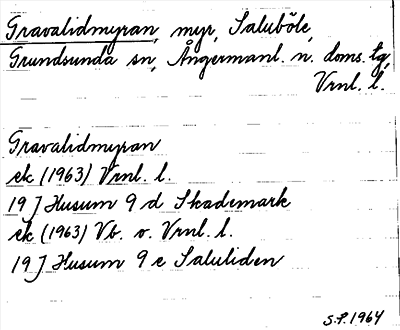 Gravalidmyran, myr, Saluböle,
Grundsunda sn, Ångermanl. n. doms. tg,
Vrnl. l.
Gravalidmyran
ek (1963) Vrnl. l.
19 J Husum 9 d Skademark
ek (1963) Vb. o. Vrnl. l.
19 J Husum 9 e Saluliden
S.P. 1964